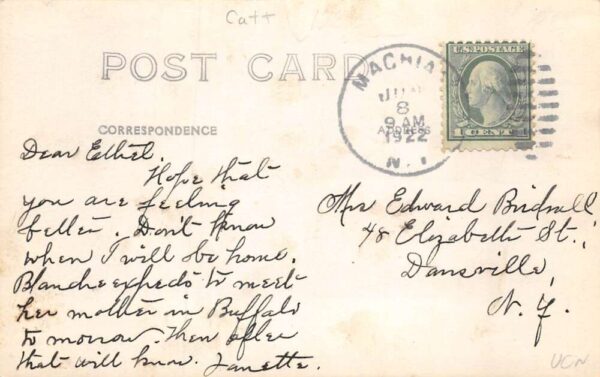 Catt
POST CARD
MACHIA
8
9 AM
1922
N.Y.
U.S. POSTAGE
1 CENT 1
CORRESPONDENCE
ADDRESS
Dear Ethel.
Hope that
you are feeling
better. Don't know
when I will be home.
Blanche expects to meet
her mother in Buffalo
to morrow. Then after
that will know. Janette.
Mrs Edward Birdsall
48 Elizabeth St.,
Dansville,
N.Y.
UCN